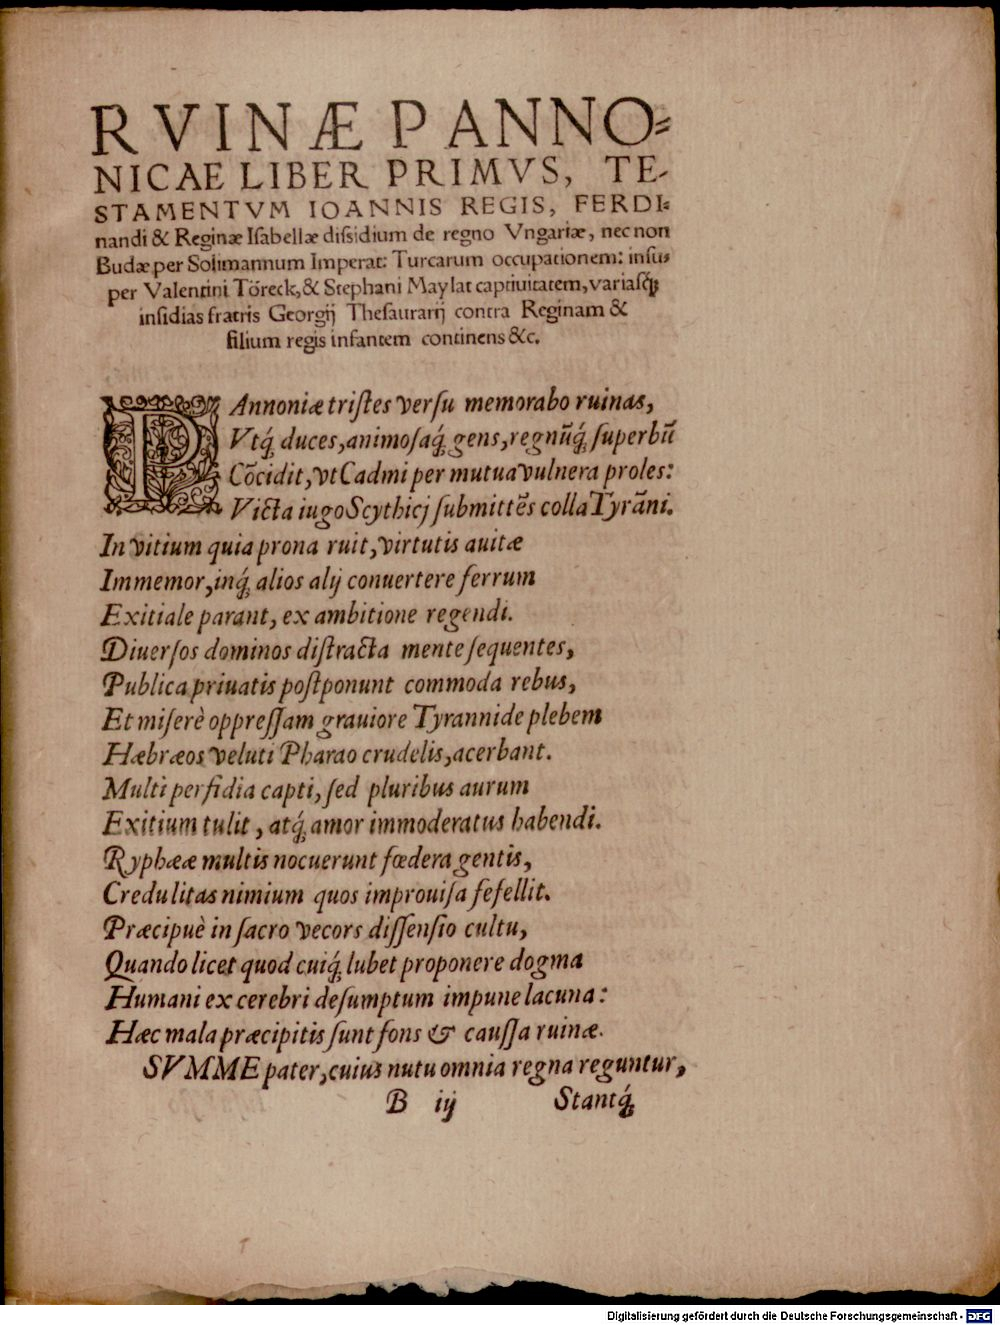 RVINÆ PANNO=
NICAE LIBER PRIMVS, TE-
STAMENTVM IOANNIS REGIS, FERDI=
nandi & Reginæ Isabellæ dissidium de regno Vngariæ, nec non
Budæ per Solimannum Imperat: Turcarum occupationem: insu=
per Valentini Töreck, & Stephani Maylat captiuitatem, variasq́;
insidias fratris Georgij Thesaurarij contra Reginam &
filium regis infantem continens &c.
PAnnoniæ tristes versu memorabo ruinas,
Vtq́; duces, animosaq́; gens, regnũq́; superbũ
Cõcidit, vt Cadmi per mutua vulnera proles:
Victa iugo Scythicj submittẽs colla Tyrãni.
In vitium quia prona ruit, virtutis auitæ
Immemor, inq́; alios alij conuertere ferrum
Exitiale parant, ex ambitione regendi.
Diuersos dominos distracta mente sequentes,
Publica priuatis postponunt commoda rebus,
Et miserè oppressam grauiore Tyrannide plebem
Hæbræos veluti Pharao crudelis, acerbant.
Multi perfidia capti, sed pluribus aurum
Exitium tulit, atq́; amor immoderatus habendi.
Ryphææ multis nocuerunt fœdera gentis,
Credulitas nimium quos improuisa fefellit.
Præcipuè in sacro vecors dissensio cultu,
Quando licet quod cuiq́; lubet proponere dogma
Humani ex cerebri desumptum impune lacuna:
Hæc mala præcipitis sunt fons & caussa ruinæ.
SVMME pater, cuius nutu omnia regna reguntur,
B iij Stantq́;
Digitalisierung gefördert durch die Deutsche Forschungsgemeinschaft - DFG